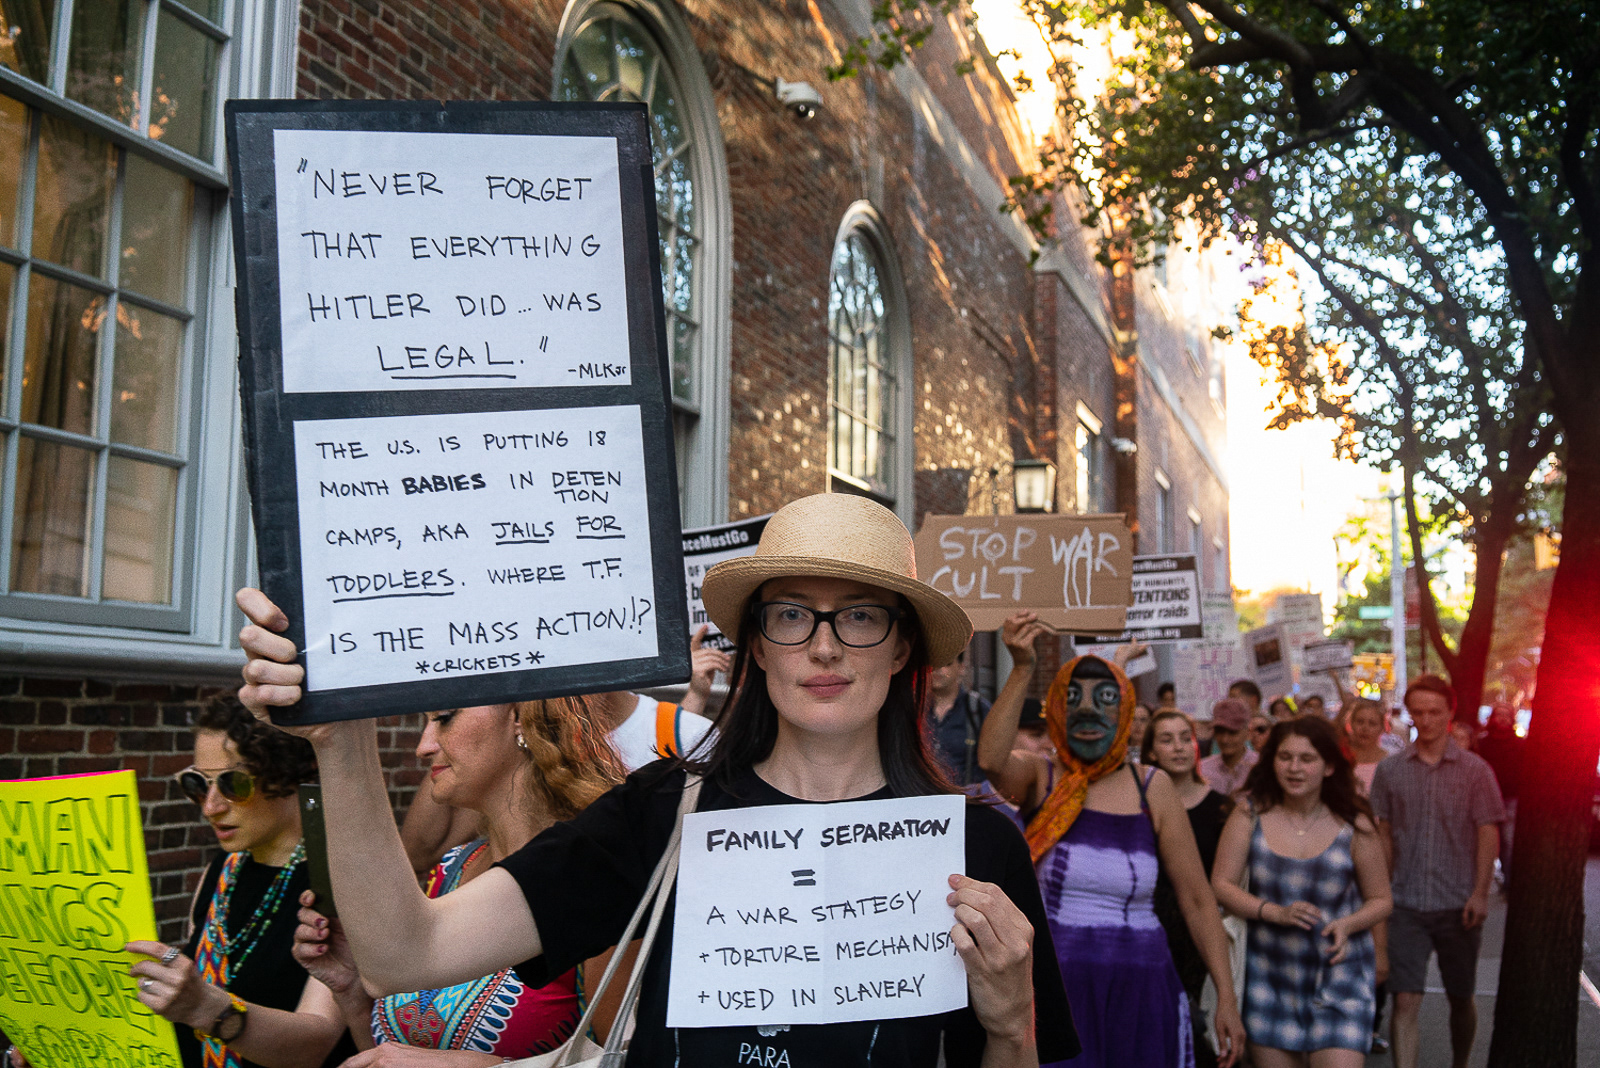 "NEVER FORGET
THAT EVERYTHING
HITLER DID... WAS
LEGAL."
-MLKJr
THE U.S. IS PUTTING 18
MONTH BABIES IN DETEN
TION
CAMPS, AKA JAILS FOR
TODDLERS. WHERE T.F.
IS THE MASS ACTION!?
*CRICKETS*
FAMILY SEPARATION
=
A WAR STATEGY
+ TORTURE MECHANISM
+ USED IN SLAVERY
PARA
STOP WAR
CULT
ceMustGo
OF HUMANITY,
TENTIONS
error raids
nceMustGo
OF
im
MAN
INGS
EFORE